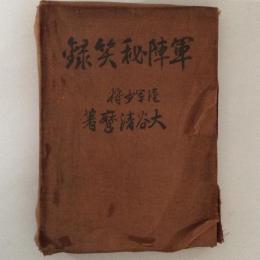 軍陣秘笑録
陸軍少将
大谷清磨著